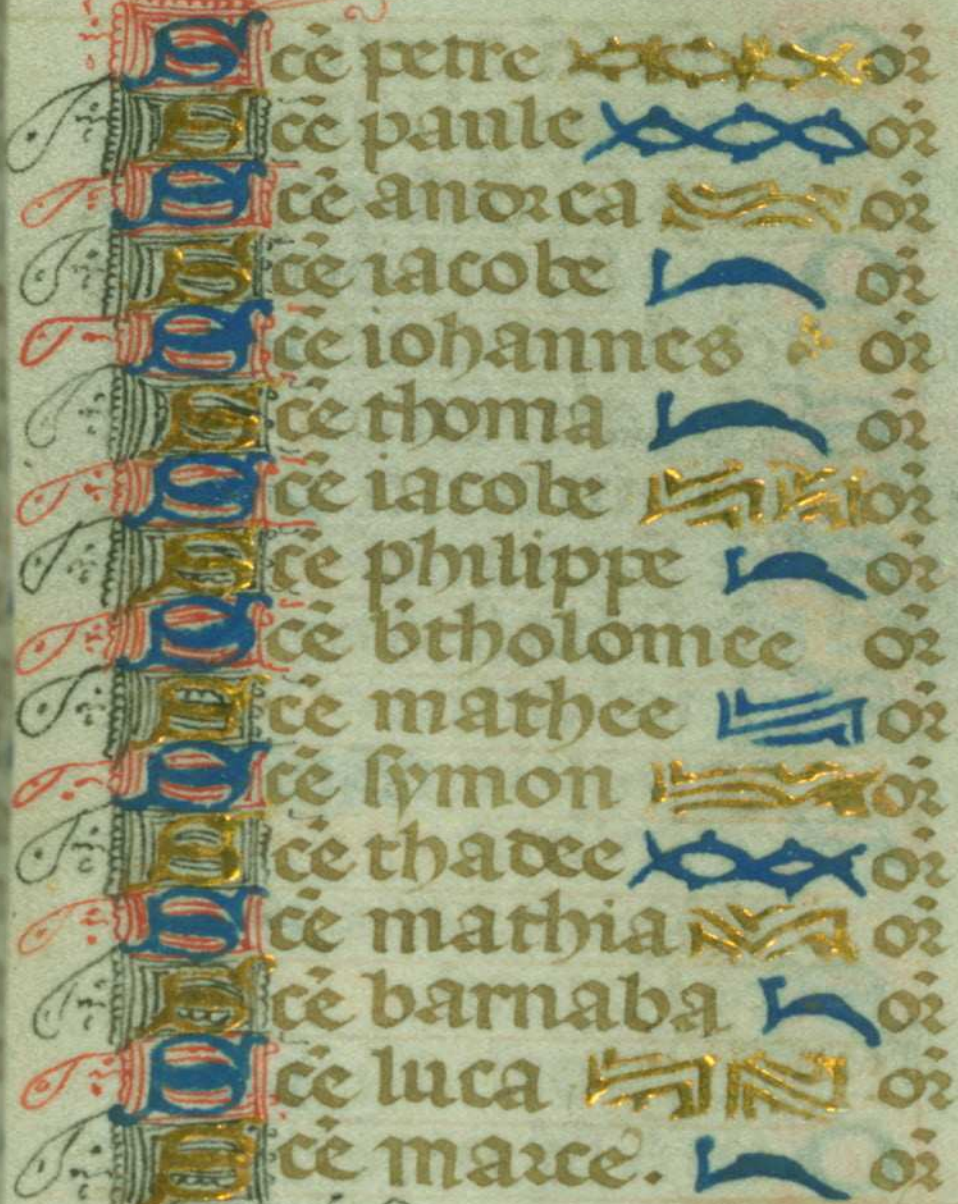 Scē petre or̄
Scē paule or̄
Scē andrea or̄
Scē iacobe or̄
Scē iohannes or̄
Scē thoma or̄
Scē iacobe or̄
Scē philippe or̄
Scē b̄tholomee or̄
Scē mathee or̄
Scē symon or̄
Scē thadee or̄
Scē mathia or̄
Scē barnaba or̄
Scē luca or̄
Scē marce. or̄